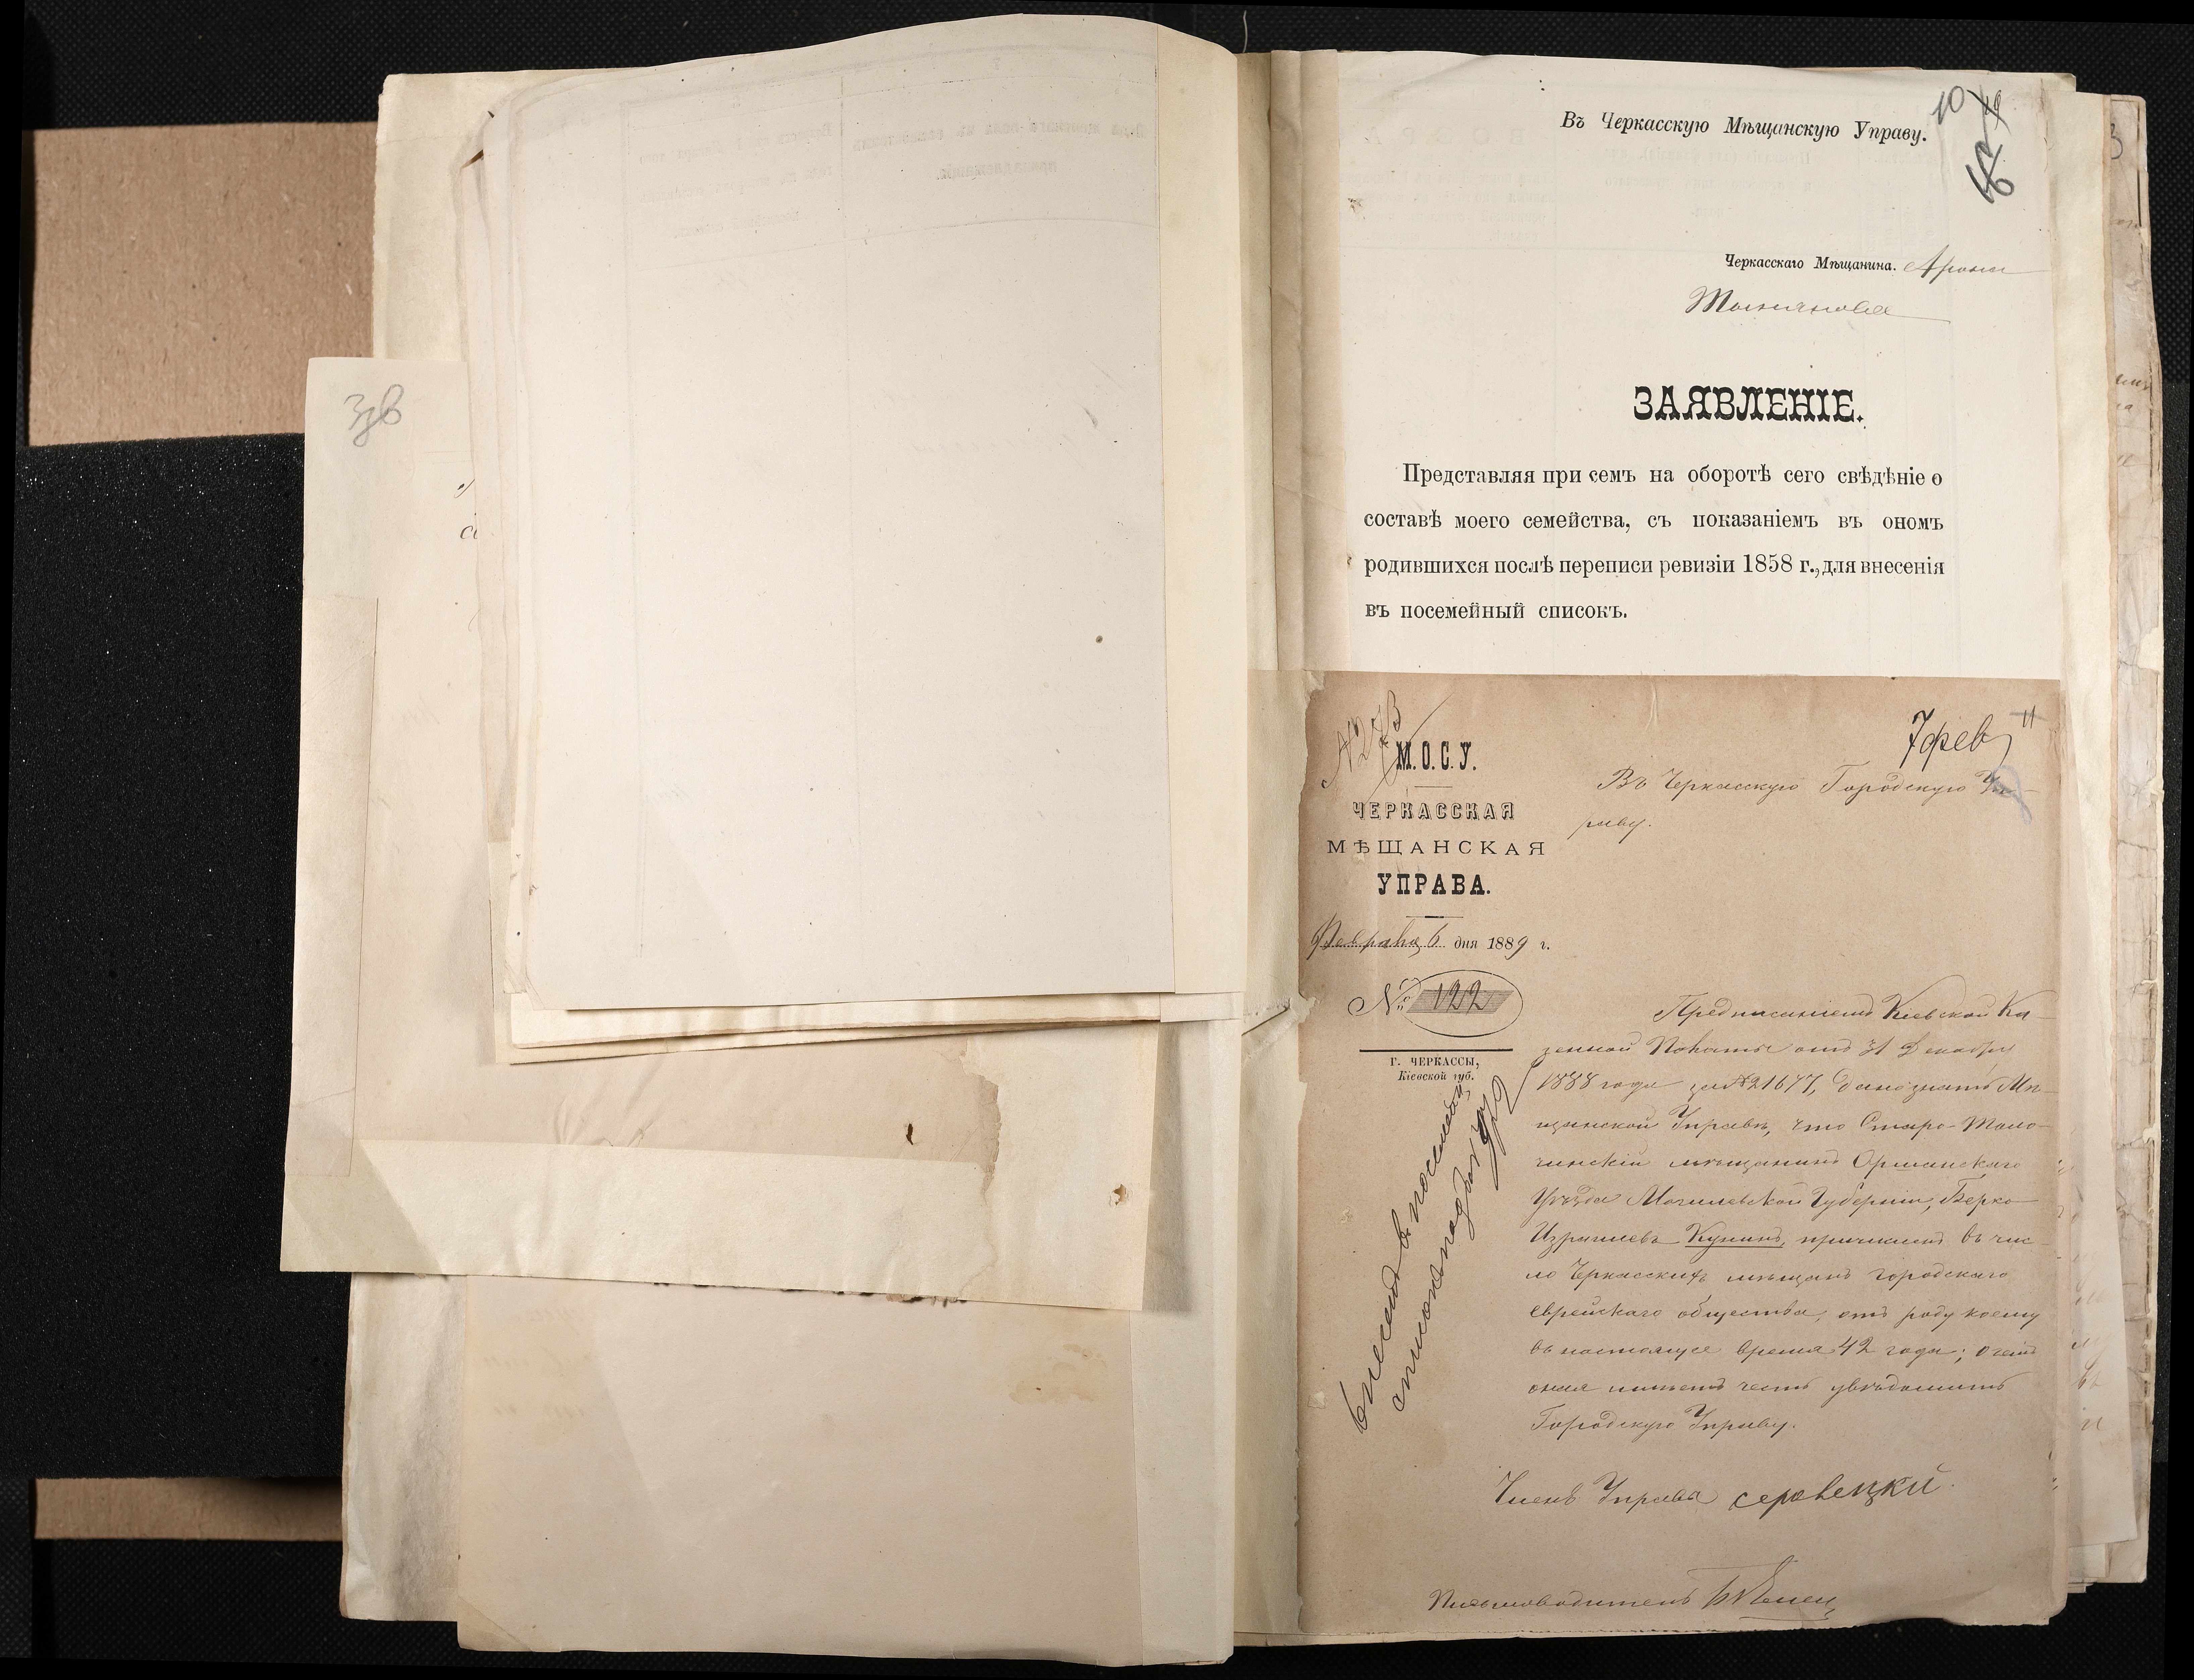 зв
10
Въ Черкасскую Мѣщанскую Управу.
Черкасскаго Мѣщанина. Арона
ЗАЯВЛЕНІЕ.
Представляя при семъ на оборотѣ сего свѣдѣніе о
составѣ моего семейства, съ показаніемъ въ ономъ
родившихся послѣ переписи ревизіи 1858 г., для внесенія
въ посемейный списокъ.
№ 273
7 фев
11
М.О.С.У.
ЧЕРКАССКАЯ
МѢЩАНСКАЯ
УПРАВА.
Февраля 6 дня 1889 г.
№ 122
Г. ЧЕРКАССЫ,
Кіевской губ.
Въ Черкасскую Городскую Уп-
раву.
Предписаніемъ Кіевской Ка-
зенной Палаты отъ 31 Декабря
1888 года за № 21677, дано знать Мѣ-
щанской Управѣ, что Старо-Толо-
чинскій мѣщанинъ Оршанскаго
Уѣзда Могилевской Губерніи, Берко
Израилевъ Кунинъ, причисленъ въ чис-
ло Черкасскихъ мѣщанъ городскаго
еврейскаго общества, отъ роду коему
въ настоящее время 42 года; о чемъ
оная имѣетъ честь увѣдомить
Городскую Управу.
внесенъ в посемейн.
списокъ под №
Членъ Управы
Письмоводитель